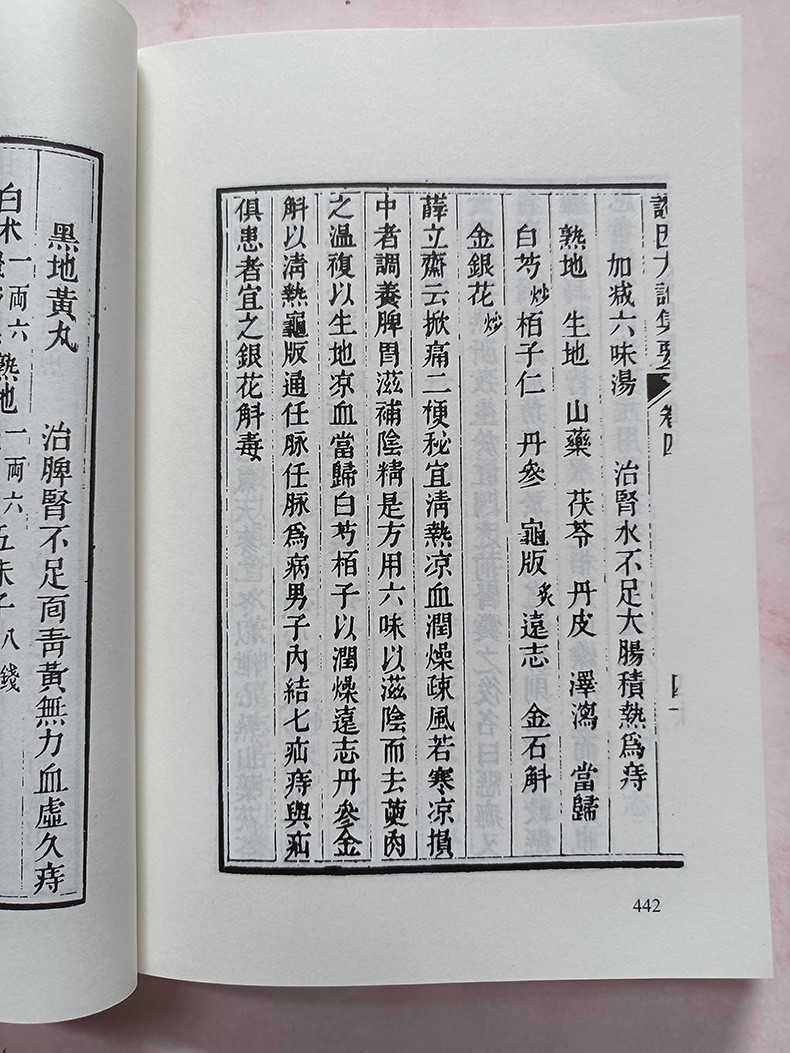 證因方論集要 卷四 四十
加减六味湯 治腎水不足大腸積熱爲痔
熟地 生地 山藥 茯苓 丹皮 澤瀉 當歸
白芍炒 栢子仁 丹參 龜版炙 遠志 金石斛
金銀花炒
薛立齋云掀痛二梗秘宜清熱凉血潤燥疎風若寒凉損
中者調養脾胃滋補陰精是方用六味以滋陰而去萸肉
之温復以生地凉血當歸白芍栢子以潤燥遠志丹參金
斛以清熱龜版通任脉任脉爲病男子內結七疝痔與疝
俱患者宜之銀花斛毒
442
黑地黃丸 治脾腎不足面靑黃無力血虛久痔
白术一両六 熟地一両六 五味子八錢